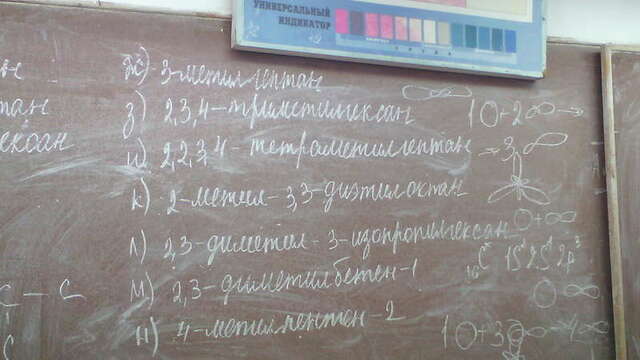 УНИВЕРСАЛЬНЫЙ
ИНДИКАТОР
ж) 3-метилгептан
з) 2,3,4-триметилгексан
и) 2,2,3,4-тетраметилгептан
к) 2-метил-3,3-диэтилоктан
л) 2,3-диметил-3-изопропилгексан
м) 2,3-диметилбутен-1
н) 4-метилпентен-2
тан
ексан
C - C
C
1 + 2 →
→ 3
+
C* 1S² 2S¹ 2p³
1 + 3